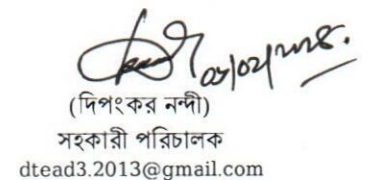 (দিপংকর নন্দী)
সহকারী পরিচালক
dtead3.2013@gmail.com